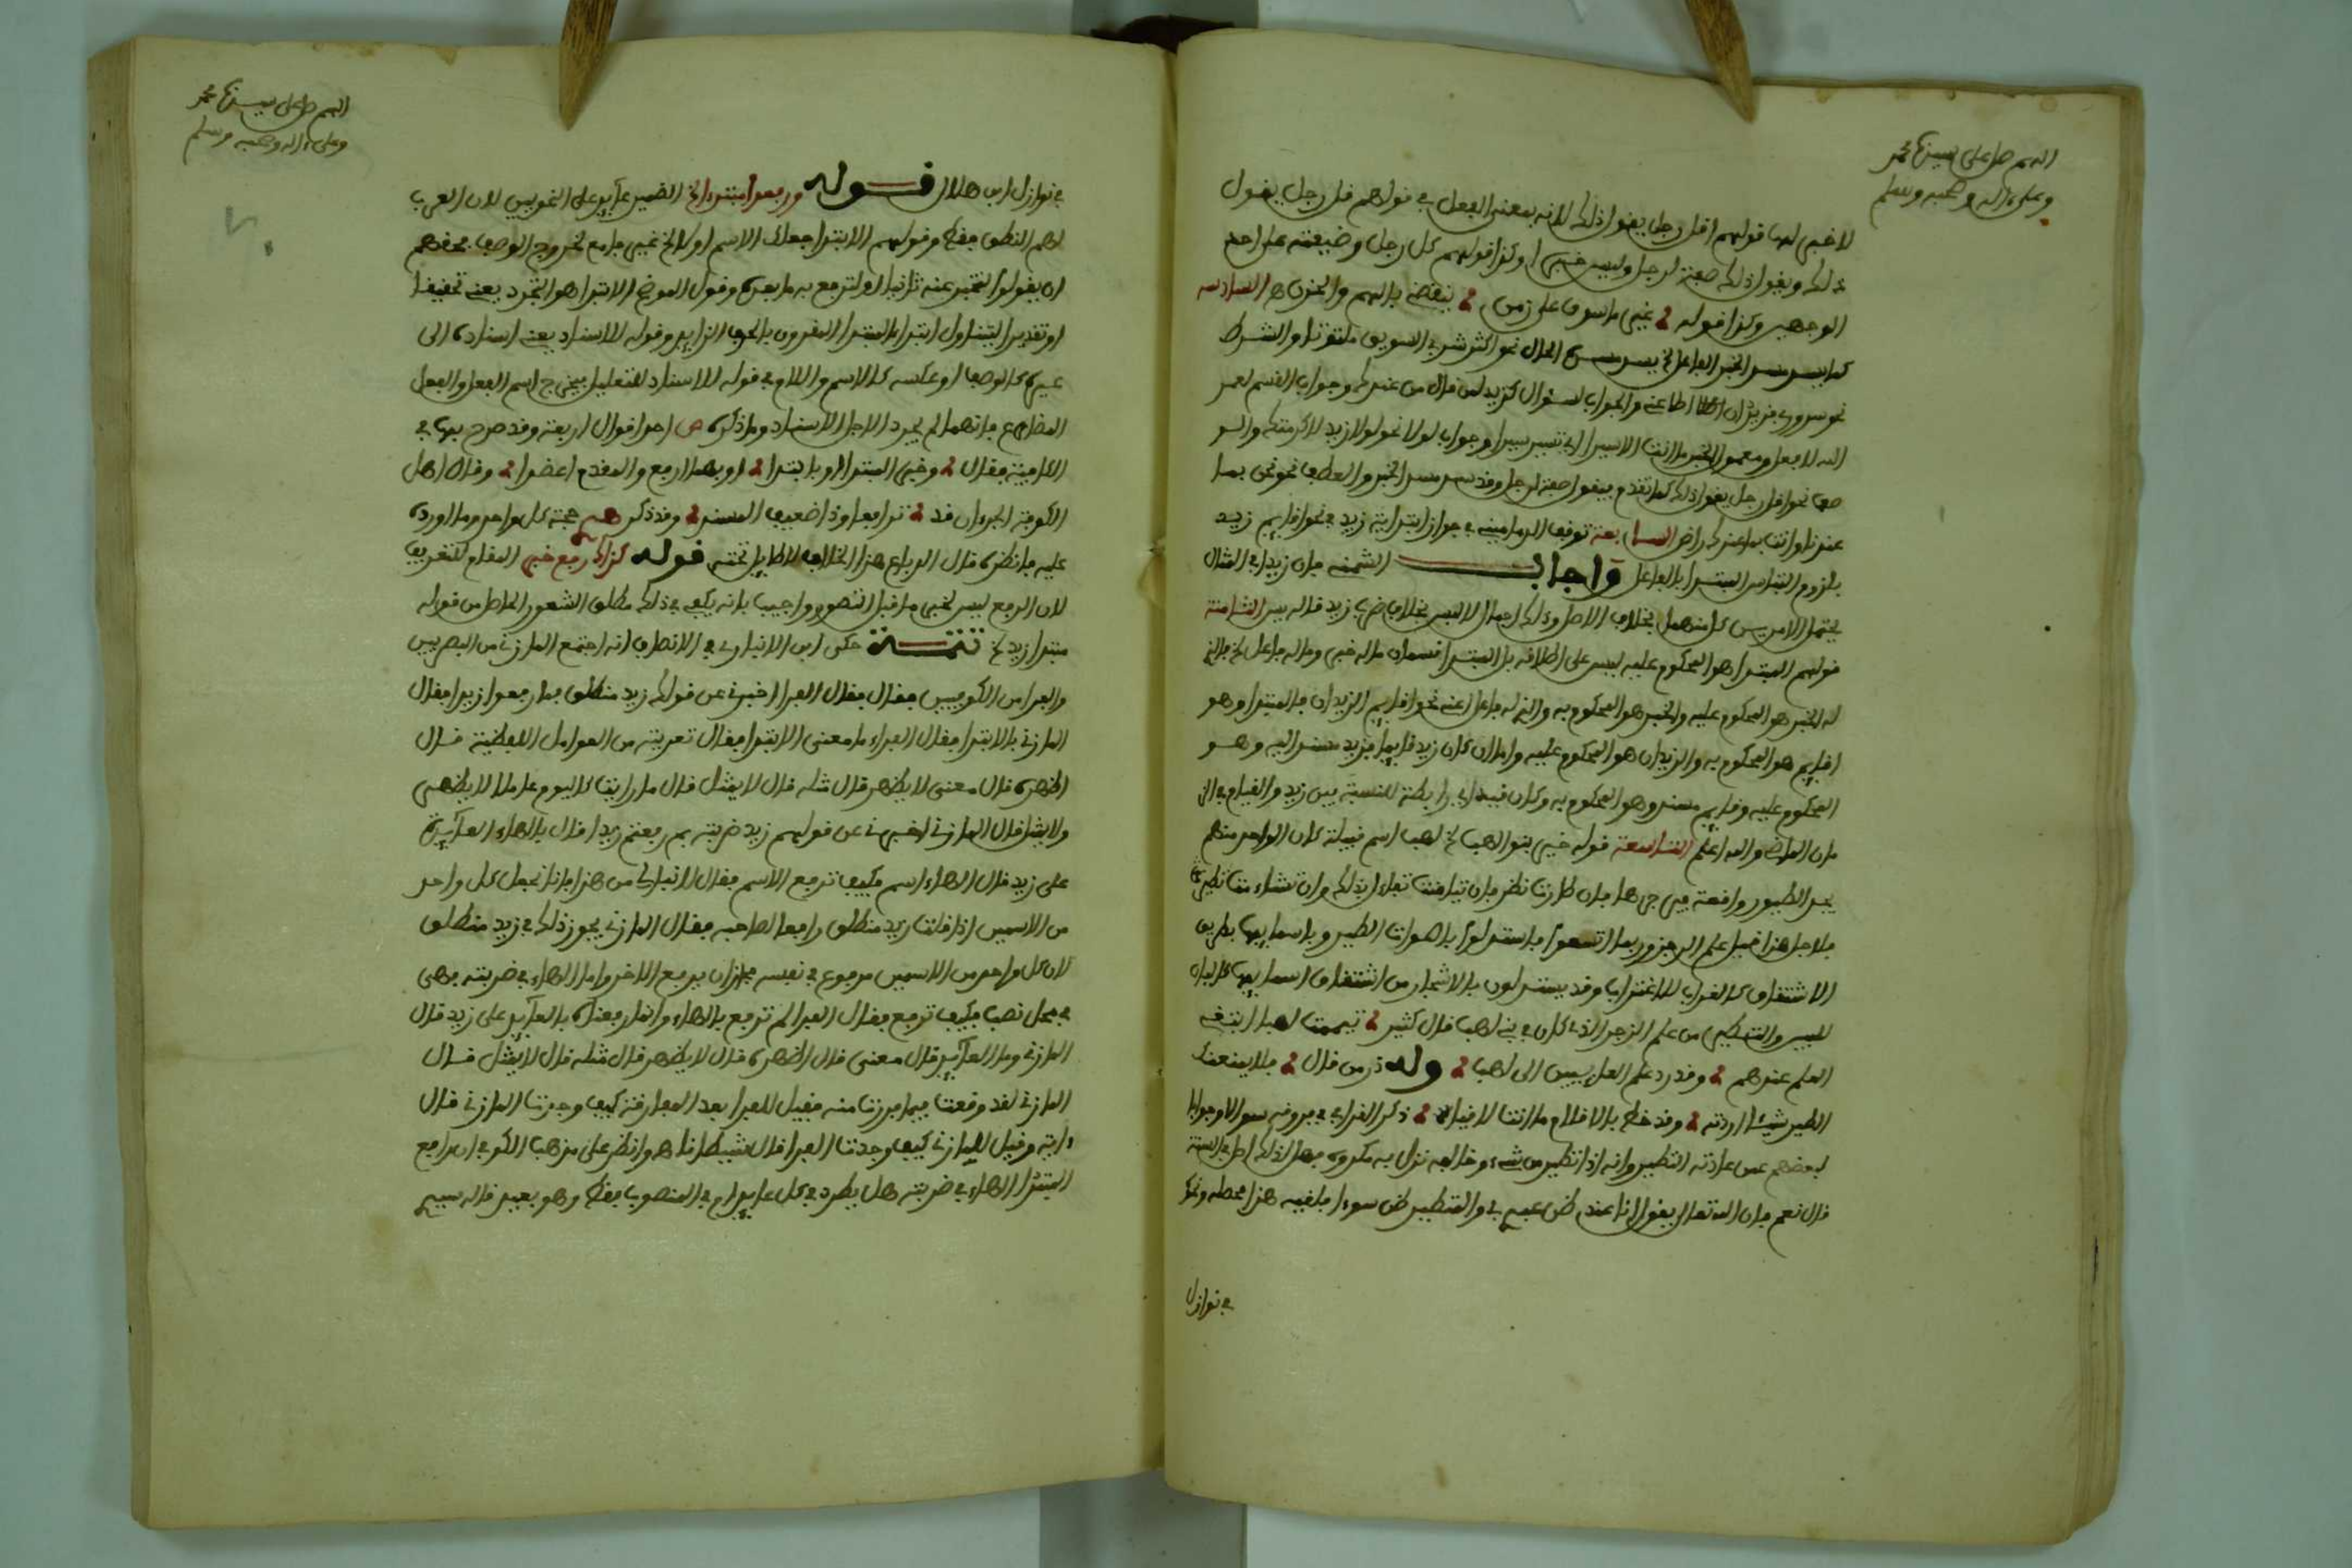 اللهم صل على سيدنا محمد
وعلى ءاله وصحبه وسلم
لا خبر لها قولهم اقل رجل يقول ذلك لانه بمعنى الفعل في قولهم قل رجل يقول
ذلك ويقول ذلك صفة لرجل وليس خبرا وكذا قولهم كل رجل وضيعته على احد
الوجهين وكذا قوله غير ماسوف على زمن ينقضي بالهم والحزن هـ السادسة
كما يسد مسد الخبر الفاعل الخ يسد مسده الحال نحو اكثر شربي السويق ملتوتا والشرط
نحو سروري بزيد ان اطاعني والجواب لسؤال كزيد لمن قال من عندك وجواب القسم لعمر
الله لافعلن ومعمول الخبر ما انت الا سيرا اي تسير سيرا وجواب لولا نحو لولا زيد لاكرمتك والو
صف نحو اقل رجل يقول ذلك كما تقدم فيقول صفة لرجل وقد سد مسد الخبر والعطف نحو نحن بما
عندنا وانت بما عندك راض السابعة توقف الدماميني في جواز ابتدائية زيد في نحو اقايم زيد
بلزوم التباس المبتدا بالفاعل واجاب الشمني بان زيدا في المثال
يحتمل الامرين كل منهما بخلاف الاصل وذلك اجمال لا لبس بخلاف ضرب زيد قاله يس الثامنة
قولهم المبتدا هو المحكوم عليه ليس على اطلاقه بل المبتدا قسمان ما له خبر وما له فاعل الخ فالذي
له الخبر هو المحكوم عليه والخبر هو المحكوم به والذي له فاعل اغنى نحو اقايم الزيدان فالمبتدا وهو
اقايم هو المحكوم به والزيدان هو المحكوم عليه واما ان كان زيد قايما فزيد مسند اليه وهو
المحكوم عليه وقايم مسند وهو المحكوم به وكان قيد اي رابطة للنسبة بين زيد والقيام في الز
مان الماضي والله اعلم التاسعة قوله خبير بنو لهب الخ لهب اسم قبيلة كان الواحد منهم
يجد الطيور واقعة فيزجرها فان طارت نظر فان تيامنت تفاءل بذلك وان تشاءمت تطير
فلاجل هذا قيل علم الزجر وربما اتسعوا فاستدلوا باصوات الطير وباسمايها بطريق
الاشتقاق كالغراب للاغتراب وقد يستدلون بالاشجار من اشتقاق اسمايها كالبان
للبين والتطير من علم الزجر الذي كان في بني لهب قال كثير تيممت لهبا ابتغي
العلم عندهم وقد رد علم العايفين الى لهب ولله در من قال فلا يمنعنك
الطير شيئا اردته وقد خط بالاقلام ما انت لاقيا ذكر القرافي في فروقه سوالا وجوابا
لبعضهم عمن عادته التطير وانه اذا تطير من شيء وخالفه نزل به مكروه فهل لذلك اصل في السنة
قال نعم فان الله تعالى يقول انا عند ظن عبدي بي والمتطير ظن سوءا فلقيه هذا محصله ونحوه
في نوازل
اللهم صل على سيدنا محمد
وعلى ءاله وصحبه وسلم
في نوازل ابن هلال قوله ورفعوا مبتدا الخ الضمير عايد على النحويين لان العرب
لهم النطق فقط وقولهم الابتدا جعلك الاسم اولا الخ غير جامع لخروج الوصف فحقهم
ان يقولوا لتخبر عنه ثانيا او لترفع به ما بعده وقول الموضح الابتدا هو التجرد يعني تحقيقا
او تقديرا ليتناول ابتدا المبتدا المقرون بالحرف الزايد وقوله للاسناد يعني اسناده الى
غيره كالوصف او عكسه كالاسم واللام في قوله للاسناد للتعليل فيخرج اسم الفعل والفعل
المضارع فانهما لم يجرد الاجل الاسناد وما ذكره ص احد اقوال اربعة وقد صرح بها في
الكافية فقال وخبر المبتدا او بابتدا او بهما ارفع والمقدم اعضدا وقال اهل
الكوفة الجزءان قد ترافعا وذا ضعيف المستند وقد ذكر هـ حجة كل واحد وما اورده
عليه فانظره قال الرباع هذا الخلاف لا طايل تحته قوله كذاك رفع خبر المقام للتعريف
لان الرفع ليس لخبر ما قبل التصور واجيب بانه يكفي في ذلك مطلق الشعور الحاصل من قوله
مبتدا زيد الخ تتمة حكى ابن الانباري في الانصاف انه اجتمع المازني من البصريين
والفرا من الكوفيين فقال فقال الفرا اخبرني عن قولك زيد منطلق بما رفعوا زيدا فقال
المازني بالابتدا فقال الفراء ما معنى الابتدا فقال تعريته من العوامل اللفظية قال
اظهره قال معنى لا يظهر قال مثله قال لا يمثل قال ما رايت كاليوم عاملا لا يظهر
ولا يمثل فقال المازني اخبرني عن قولهم زيد ضربته بم رفعتم زيدا قال بالهاء العايدة
على زيد قال الهاء اسم فكيف ترفع الاسم فقال لا نبالي من هذا فانا نجعل كل واحد
من الاسمين اذا قلت زيد منطلق رافعا لصاحبه فقال المازني يجوز ذلك في زيد منطلق
لان كل واحد من الاسمين مرفوع في نفسه فجاز ان يرفع الاخر واما الهاء في ضربته فهي
في محل نصب فكيف ترفع فقال الفرا لم ترفع بالهاء وانما رفعناه بالعايد على زيد قال
المازني وما العايد قال معنى قال اظهره قال لا يظهر قال مثله قال لا يمثل قال
المازني لقد وقعت فيما فررت منه فقيل للفرا بعد المفارقة كيف وجدت المازني قال
ءاية وقيل للمازني كيف وجدت الفرا قال شيطانا هـ وانظر على مذهب الكوفي ان رافع
المبتدا الهاء في ضربته هل يطرد في كل عايد ام في المنصوب فقط وهو بعيد قاله سيبـ